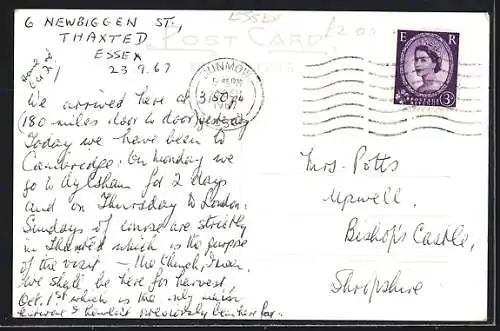 6 NEWBIGGEN ST.,
THAXTED
ESSEX
23.9.67
ESSEX
£2.00
POST CARD
DUNMOW
E R
POSTAGE REVENUE
3D
We arrived here at 3.50 pm
(180 miles door to door) yesterday
Today we have been to
Cambridge. On Monday we
go to Aylsham for 2 days
and on Thursday to London.
Sundays of course are strictly
in Thaxted which is the purpose
of the visit – the Church, I mean.
We shall be here for harvest,
Oct. 1st which is the only
previously been here for.
Mrs. Potts
Upwell,
Bishop's Castle,
Shropshire